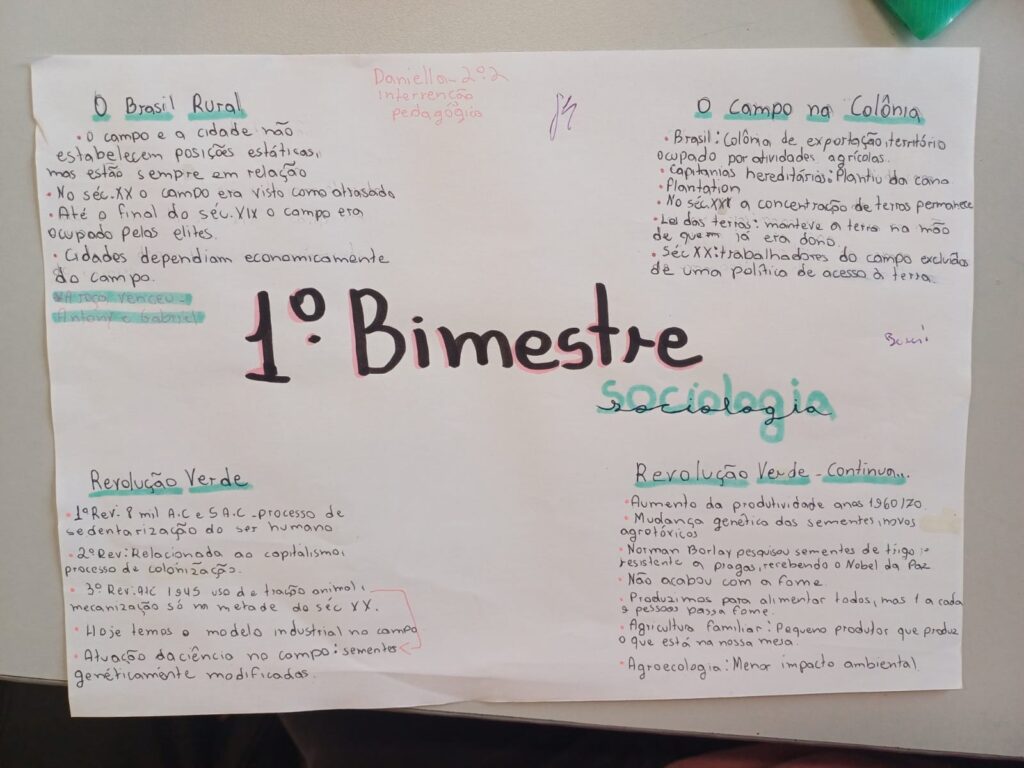 Daniella - 2º.2
Intervenção
pedagógica
O Brasil Rural
• O campo e a cidade não
estabelecem posições estáticas,
mas estão sempre em relação
• No séc. XX o campo era visto como atrasado
• Até o final do séc. XIX o campo era
ocupado pelas elites.
• Cidades dependiam economicamente
do campo.
*A roça venceu -
Antony e Gabriel
O Campo na Colônia
• Brasil: Colônia de exportação, território
ocupado por atividades agrícolas.
• Capitanias hereditárias: Plantiu da cana.
• Plantation
• No séc. XXI a concentração de terras permanece
• Lei das terras: manteve a terra na mão
de quem já era dono.
• Séc XX: trabalhadores do campo excluídos
de uma política de acesso à terra.
1º. Bimestre
sociologia
sociologia
Revolução Verde
• 1ª Rev: 8 mil A.C e 5 A.C - processo de
sedentarização do ser humano
• 2ª Rev: Relacionada ao capitalismo,
processo de colonização.
• 3º Rev: Até 1945 uso de tração animal,
mecanização só na metade do séc XX.
• Hoje temos o modelo industrial no campo
• Atuação da ciência no campo: sementes
genéticamente modificadas.
Revolução Verde - Continua...
• Aumento da produtividade anos 1960/70.
• Mudança genética das sementes, novos
agrotóxicos
• Norman Borlay pesquisou sementes de trigo
resistente a pragas, recebendo o Nobel da Paz
• Não acabou com a fome.
• Produzimos para alimentar todos, mas 1 a cada
9 pessoas passa fome.
• Agricultura familiar: Pequeno produtor que produz
o que está na nossa mesa.
• Agroecologia: Menor impacto ambiental.